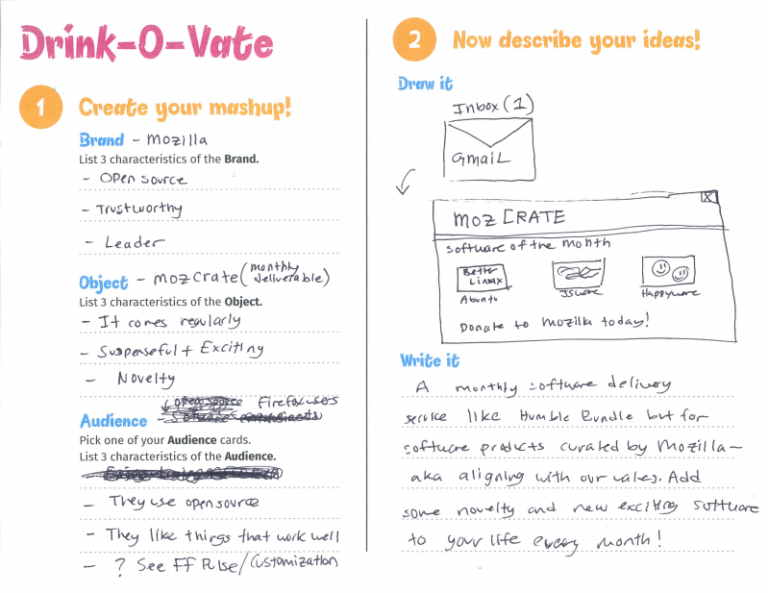 Drink-O-Vate
1 Create your mashup!
Brand - Mozilla
List 3 characteristics of the Brand.
- Open source
- Trustworthy
- Leader
Object - mozcrate (monthly deliverable)
List 3 characteristics of the Object.
- It comes regularly
- Suspenseful + Exciting
- Novelty
Firefox users
Audience
Pick one of your Audience cards.
List 3 characteristics of the Audience.
- They use open source
- They like things that work well
- ? See FF Pulse/Customization
2 Now describe your ideas!
Draw it
Inbox (1)
Gmail
moz CRATE
X
Software of the month
Better Linux
Abuntu
JSware
Happyware
Donate to Mozilla today!
Write it
A monthly software delivery
service like Humble Bundle but for
software products curated by Mozilla-
aka aligning with our values. Add
some novelty and new exciting software
to your life every month!